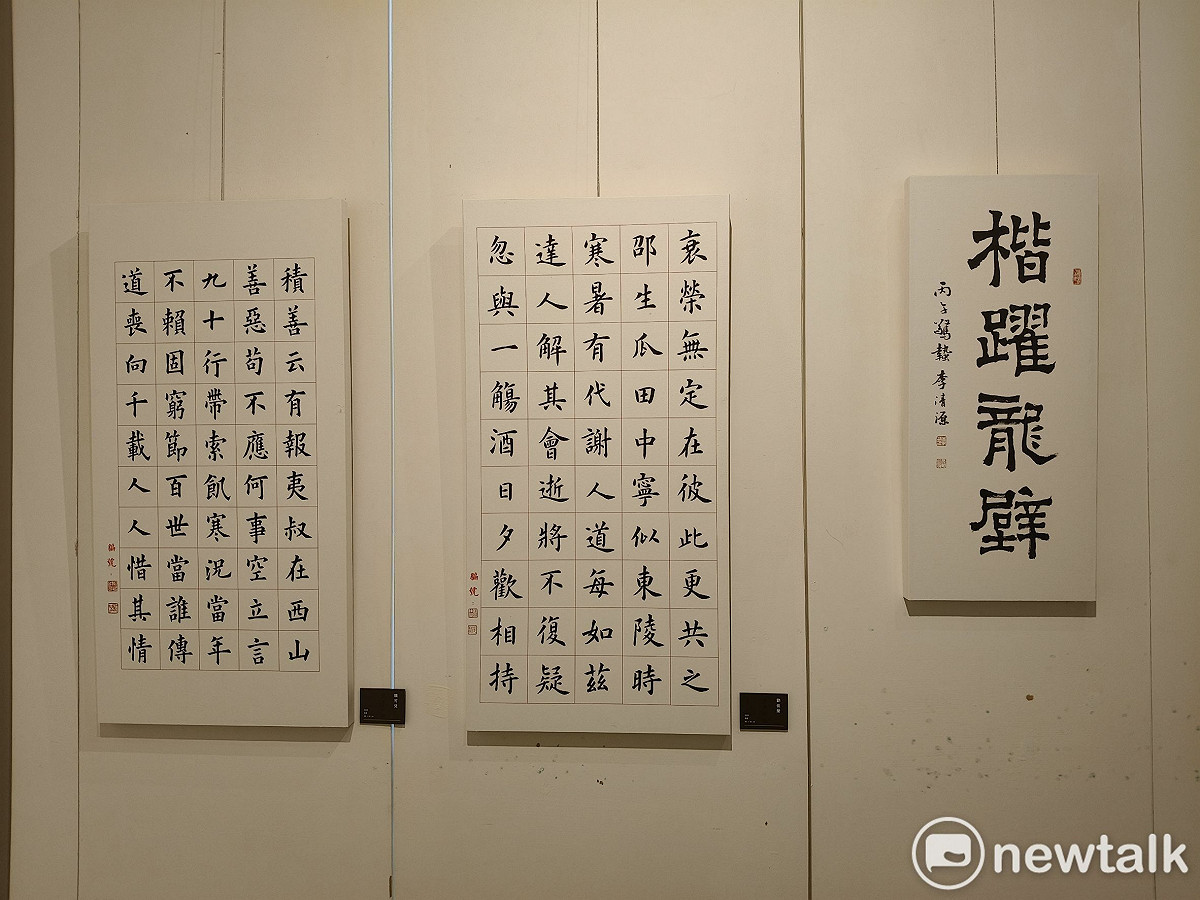 楷躍龍壁
丙午驚蟄李清源
衰榮無定在彼此更共之
邵生瓜田中寧似東陵時
寒暑有代謝人道每如茲
達人解其會逝將不復疑
忽與一觴酒日夕歡相持
積善云有報夷叔在西山
善惡苟不應何事空立言
九十行帶索飢寒況當年
不賴固窮節百世當誰傳
道喪向千載人人惜其情
newtalk